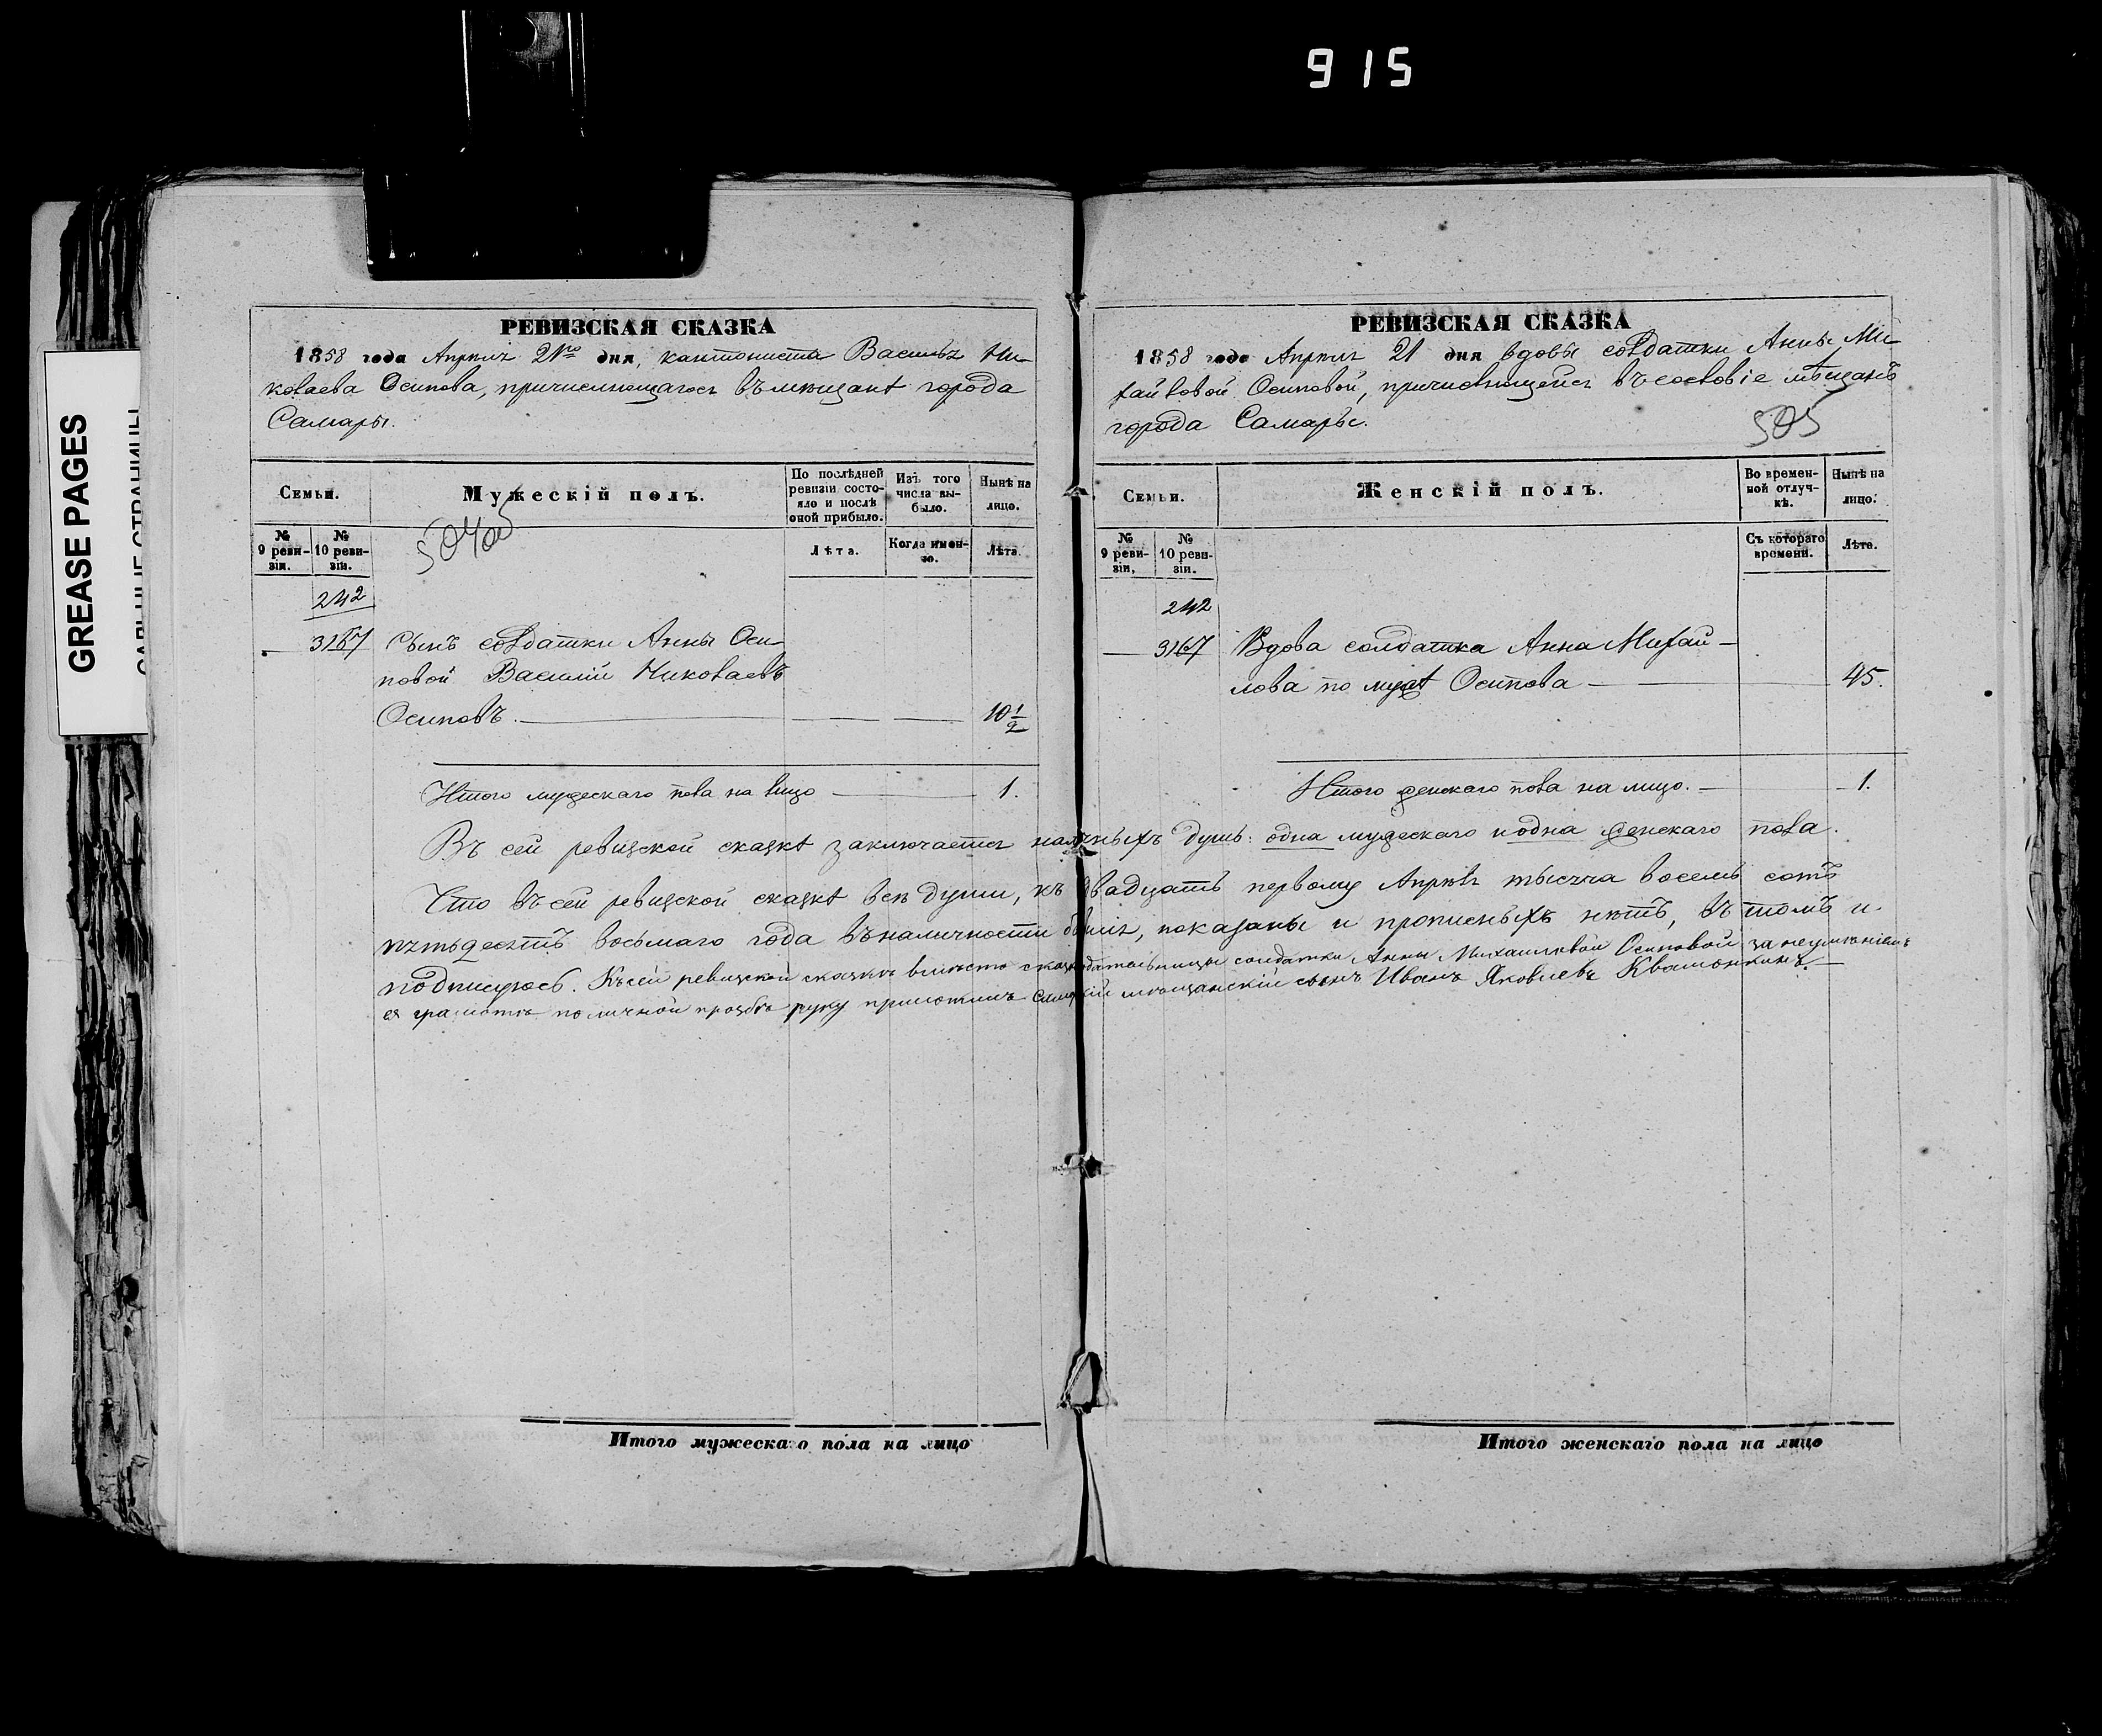 915
GREASE PAGES
САЛЬНЫЕ СТРАНИЦЫ
РЕВИЗСКАЯ СКАЗКА
1858 года Апрѣля 21го дня, кантониста Василья Ни-
колаева Осипова, причисляющагося въ мѣщанѣ города
Самары.
Семьи.
Мужескій полъ.
По послѣдней ревизіи состо-яло и послѣ оной прибыло.
Изъ того числа вы-было.
Нынѣ на лицо.
№ 9 реви-зіи.
№ 10 реви-зіи.
Лѣта.
Когда имен-но.
Лѣта.
242
3167 Сынъ солдатки Анны Оси-
повой Василій Николаевъ
Осиповъ. 10 1/2
Итого мужескаго пола на лицо 1.
РЕВИЗСКАЯ СКАЗКА
1858 года Апрѣля 21 дня вдовы солдатки Анны Ми-
хайловой Осиповой, причисляющейся въ сословіе мѣщанъ
города Самары.
505
Семьи.
Женскій полъ.
Во времен-ной отлуч-кѣ.
Нынѣ на лицо.
№ 9 реви-зіи.
№ 10 реви-зіи.
Съ котораго времени.
Лѣта.
242
3167 Вдова солдатка Анна Михай-
лова по мужѣ Осипова 45.
Итого женскаго пола на лицо. 1.
Въ сей ревизской сказкѣ заключается наличныхъ душъ: одна мужескаго и одна женскаго пола.
Что въ сей ревизской сказкѣ всѣ души, къ двадцать первому Апрѣля тысяча восемь сотъ
пятьдесятъ восьмаго года въ наличности былія, показаны и прописныхъ нѣтъ, въ томъ и
подписуюсь. Къ сей ревизской сказкѣ вмѣсто сказкодательницы солдатки Анны Михаиловой Осиповой за неумѣніемъ
ея грамотѣ по личной прозбѣ руку приложилъ мѣщанскій сынъ Иванъ Яковлевъ Квашонкинъ.
Итого мужескаго пола на лицо
Итого женскаго пола на лицо